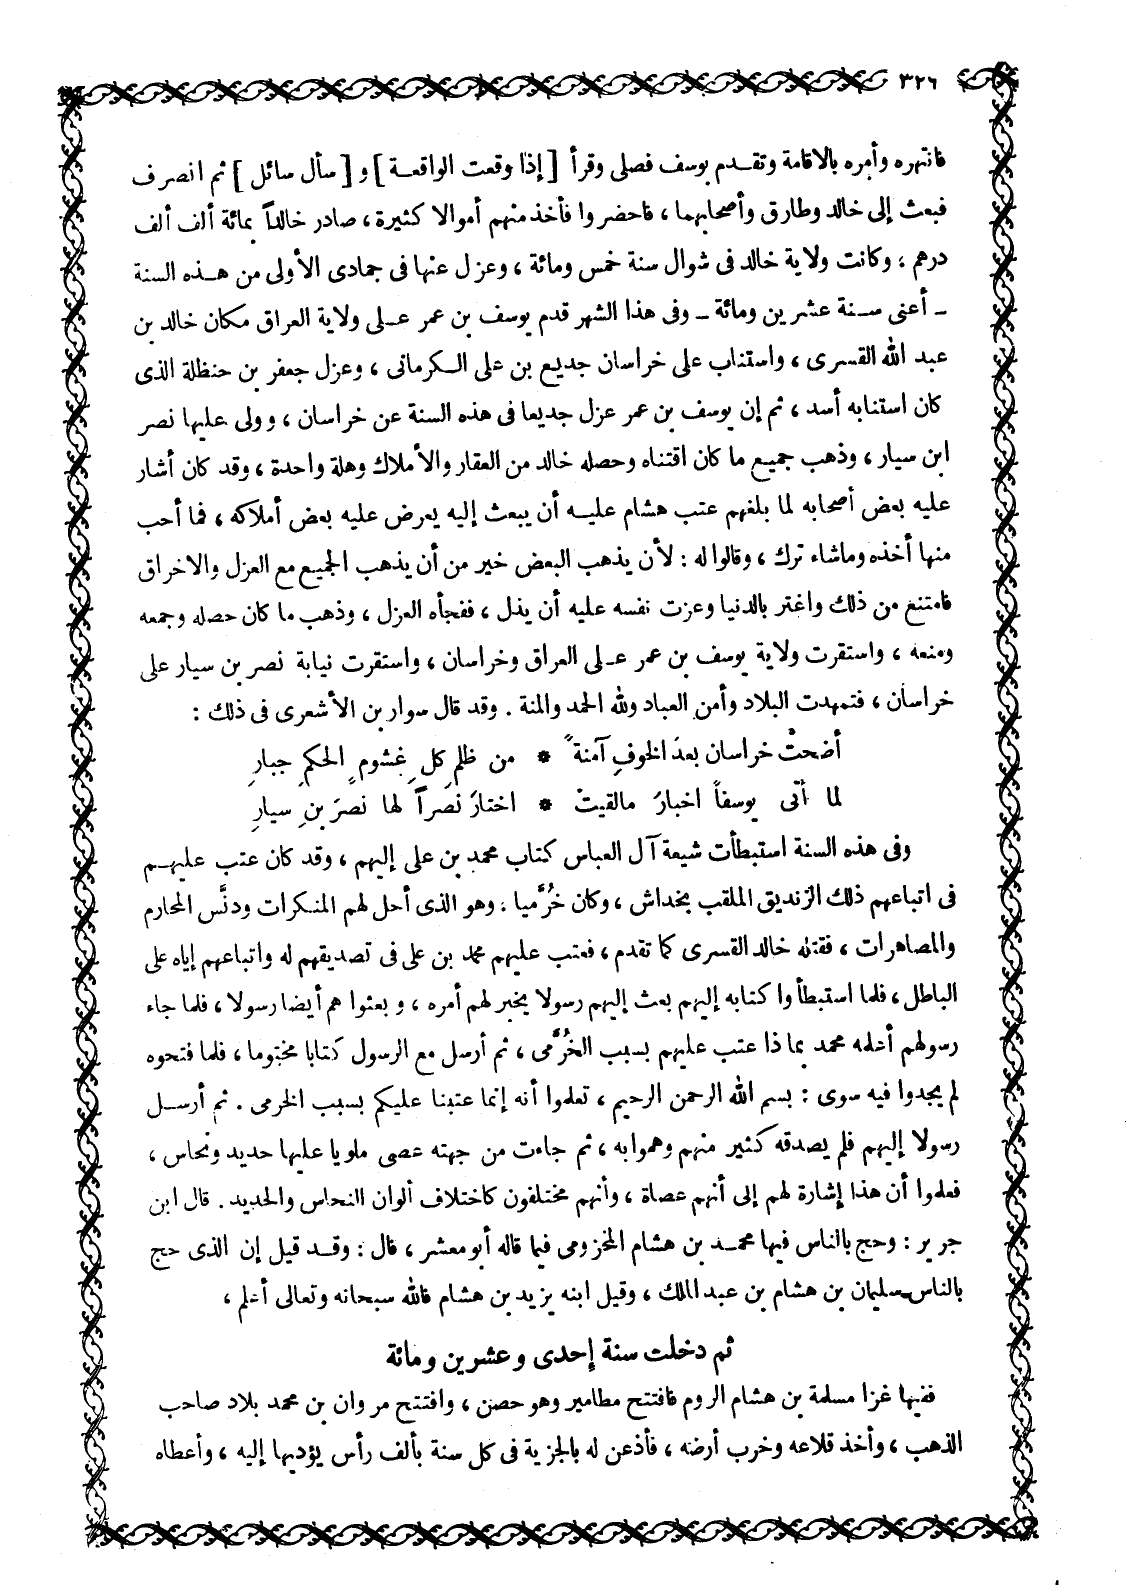 ٣٢٦
فانتهره وأمره بالاقامة وتقدم يوسف فصلى وقرأ [ إذا وقعت الواقعة ] و [ سأل سائل ] ثم انصرف
فبعث إلى خالد وطارق وأصحابهما ، فاحضروا فأخذ منهم أموالا كثيرة ، صادر خالداً بمائة ألف ألف
درهم ، وكانت ولاية خالد فى شوال سنة خمس ومائة ، وعزل عنها فى جمادى الأولى من هذه السنة
ــ أعنى سنة عشرين ومائة ــ وفى هذا الشهر قدم يوسف بن عمر على ولاية العراق مكان خالد بن
عبد الله القسرى ، واستناب على خراسان جديع بن على الكرمانى ، وعزل جعفر بن حنظلة الذى
كان استنابه أسد ، ثم إن يوسف بن عمر عزل جديعا فى هذه السنة عن خراسان ، وولى عليها نصر
ابن سيار ، وذهب جميع ما كان اقتناه وحصله خالد من العقار والأملاك وهلة واحدة ، وقد كان أشار
عليه بعض أصحابه لما بلغهم عتب هشام عليه أن يبعث إليه يعرض عليه بعض أملاكه ، فما أحب
منها أخذه وماشاء ترك ، وقالوا له : لأن يذهب البعض خير من أن يذهب الجميع مع العزل والاخراق
فامتنع من ذلك واغتر بالدنيا وعزت نفسه عليه أن يذل ، ففجأه العزل ، وذهب ما كان حصله وجمعه
ومنعه ، واستقرت ولاية يوسف بن عمر على العراق وخراسان ، واستقرت نيابة نصر بن سيار على
خراسان ، فتمهدت البلاد وأمن العباد ولله الحمد والمنة . وقد قال سوار بن الأشعرى فى ذلك :
أضحتْ خراسان بعدَ الخوفِ آمنةً * من ظلمِ كلِ غشومٍ الحكمِ جبارِ
لما أتى يوسفاً اخبارَ مالقيتْ * اختارَ نصراً لها نصرَ بنِ سيارِ
وفى هذه السنة استبطأت شيعة آل العباس كتاب محمد بن على إليهم ، وقد كان عتب عليهم
فى اتباعهم ذلك الزنديق الملقب بخداش ، وكان خُرَّميا . وهو الذى أحل لهم المنكرات ودنَّس المحارم
والمصاهرات ، فقتله خالد القسرى كما تقدم ، فعتب عليهم محمد بن على فى تصديقهم له واتباعهم إياه على
الباطل ، فلما استبطأوا كتابه إليهم بعث إليهم رسولا يخبر لهم أمره ، وبعثوا هم أيضا رسولا ، فلما جاء
رسولهم أعلمه محمد بماذا عتب عليهم بسبب الخُرَّمى ، ثم أرسل مع الرسول كتابا مختوما ، فلما فتحوه
لم يجدوا فيه سوى : بسم الله الرحمن الرحيم ، تعلموا أنه إنما عتبنا عليكم بسبب الخرمى . ثم أرسل
رسولا إليهم فلم يصدقه كثير منهم وهموا به ، ثم جاءت من جهته عصى ملويا عليها حديد ونحاس ،
فعلموا أن هذا إشارة لهم إلى أنهم عصاة ، وأنهم مختلفون كاختلاف ألوان النحاس والحديد . قال ابن
جرير : وحج بالناس فيها محمد بن هشام المخزومى فيما قاله أبو معشر ، قال : وقد قيل إن الذى حج
بالناس سليمان بن هشام بن عبد الملك ، وقيل ابنه يزيد بن هشام فالله سبحانه وتعالى أعلم ،
ثم دخلت سنة إحدى وعشرين ومائة
ففيها غزا مسلمة بن هشام الروم فافتتح مطامير وهو حصن ، وافتتح مروان بن محمد بلاد صاحب
الذهب ، وأخذ قلاعه وخرب أرضه ، فأذعن له بالجزية فى كل سنة بألف رأس يؤديها إليه ، وأعطاه